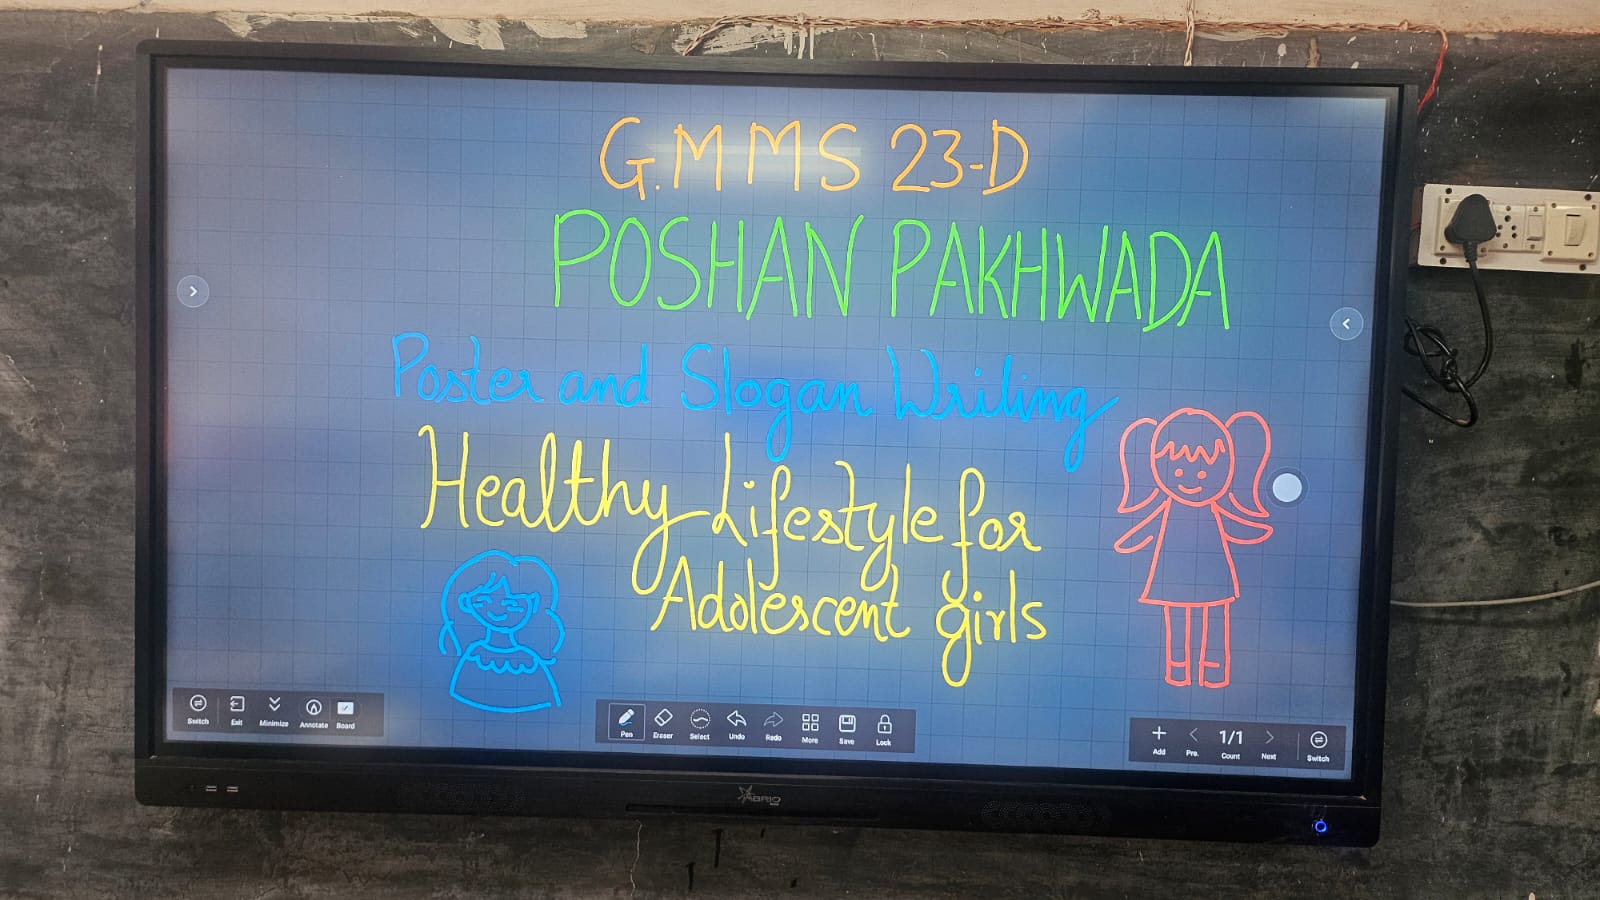 G.M M S 23-D
POSHAN PAKHWADA
Poster and Slogan Writing
Healthy Lifestyle for
Adolescent girls
Switch
Exit
Minimize
Annotate
Board
Pen
Eraser
Select
Undo
Redo
More
Save
Lock
Add
Pre.
1/1
Count
Next
Switch
ABRIO